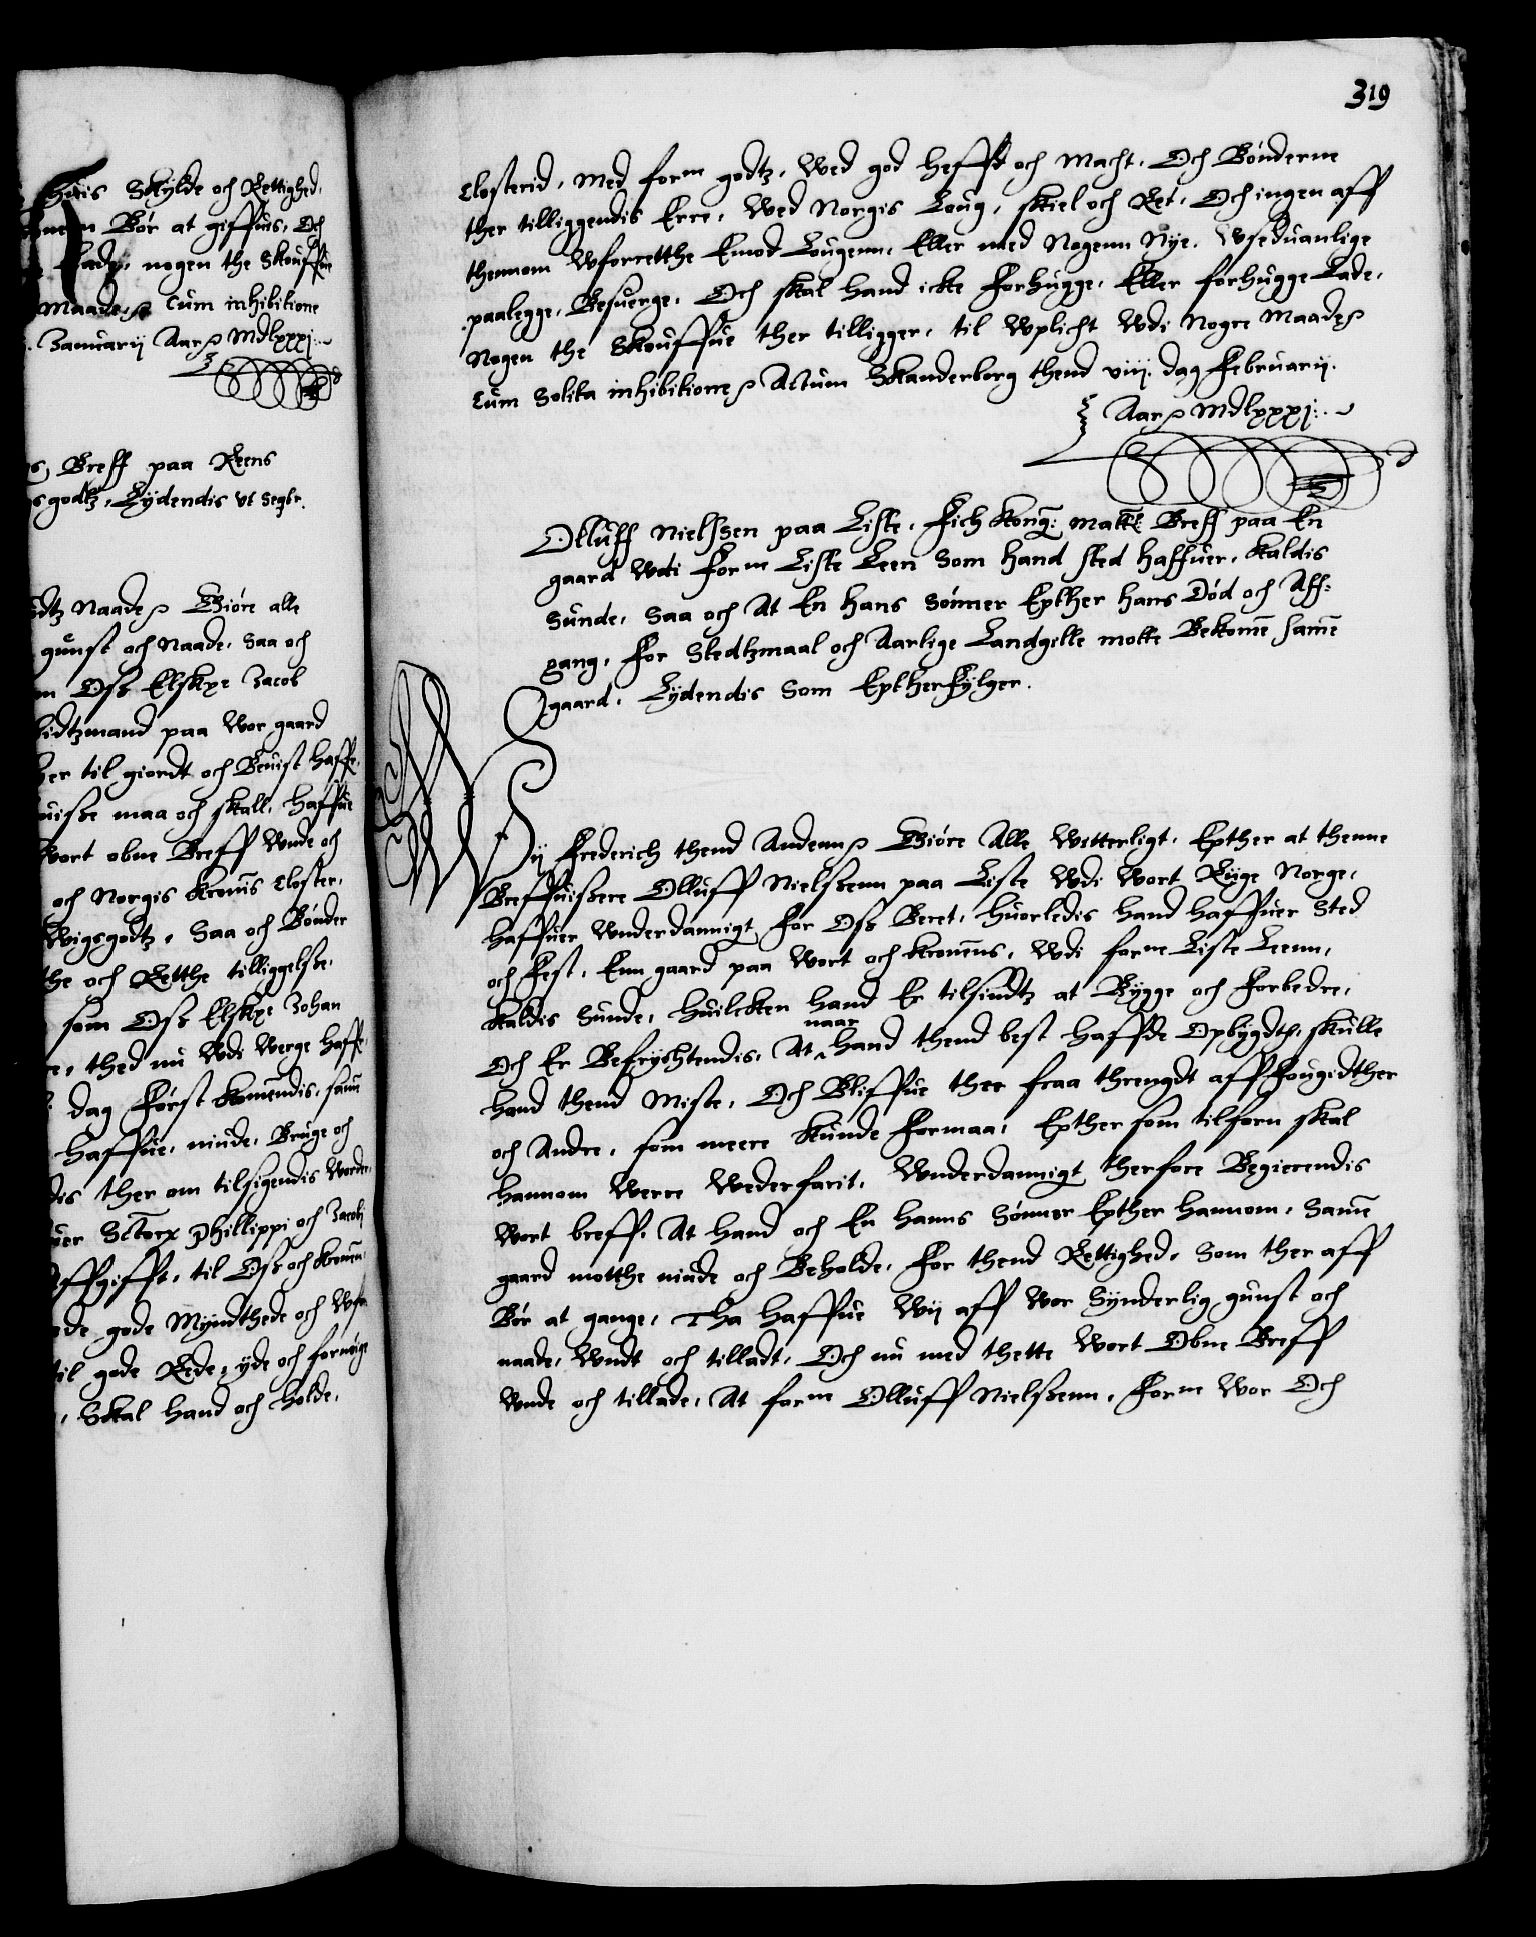 høris Skylde och Rettighed,
Bør at giffuis, Och
Lade, nogen the Skouffue
Maade, Cum inhibitione
Januarij Aar Mdlxxxj
Breff paa Reens
godtz, Lydendis vt Seqtr.
udtz Naade Giøre alle
gunst och Naade, Saa och
Oss Elskpe Jacob
lidtzmand paa Wor gaard
her til giordt och Beuist haffr,
uisse maa och skall, haffue
wort obne Breff Unde och
och Norgis Krouns Closter,
Wigsgodtz, Saa och Bønder
the och Retthe tilliggelsse,
som Oss Elskpe Johan
re, thed nu Wdi Werge haffr,
dag Først Komendis, samme
haffue, niude, Bruge och
dis ther om tilsigendis Worder,
uer Sctorx Phillippi och Jacobj
Affgifft, til Oss och Kronen,
ode gode Myndthede och Wfor
til gode Rede, yde och fornøige
, Skal hand och holde,
319
Closterid, Med form godtz, Wed god heffd och Macht, Och Bønderne
ther tilliggendis Erre, Wed Norgis Loug, skiel och Ret, Och ingen aff
thennom Wforretthe Emod Lougenn, Eller med Nogenn Nye, Wseduanlige
paalegge, Besuerge, Och skal hand icke Forhugge, Eller forhugge Lade,
Nogen the Skouffue ther tilligger, til Wplicht Wdi Nogre Maade
Cum Solita inhibitione Actum Skanderborg thend viij dag Februarij.
Aar Mdlxxxj
Olluff Nielssen paa Liste, Fich Kong: Matt: Breff paa En
gaard Wdi Form Liste Leen Som hand sted haffuer, Kaldis
Sunde, Saa och At En hans Sønner Epther hans Død och Aff:
gang, For Stedtzmaal och Aarlige Landgille motte Bekome same
gaard, Lydendis Som Eptherfylger.
Wij Frederich thend Andenn Giøre Alle Witterligt, Epther at thenne
Breffuissere Olluff Nielssenn paa Liste Wdi Wort Rige Norge,
haffuer Wnderdannigt for Oss Beret, huorledis hand haffuer Sted
och Fest, Enn gaard paa Wort och Kronens, Wdi forne Liste Leenn,
Kaldis Sunde, huilcken hand Er tilsindtz at Bygge och Forbedre,
Och Er Befryghtendis, At naar hand thend best haffde Opbygdth, skulle
hand thend Miste, Och Bliffue ther fraa threngdt aff Fougidther
och Andre, som meere Kunde Formaa, Epther som tilforn skal
hannom Werre Wederfarit, Wnderdannigt therfore Begierendis
Wort breff, At hand och En hanns Sønner Epther hannom, Same
gaard motthe niude och Beholde, For thend Rettighed, Som ther aff
Bør at gange, Tha haffue Wij aff Wor Synderlig gunst och
naade, Wndt och tilladt, Och nu med thette Wort Obne Breff
Wnde och tillade, At form Olluff Nielssenn, Form Wor Och